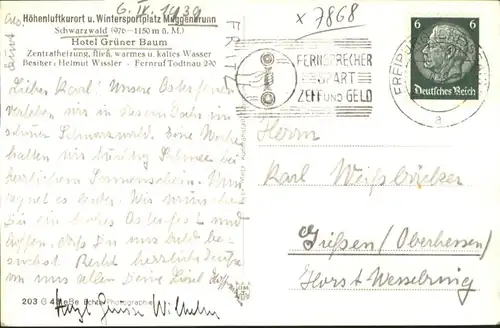 6. IV. 1939
x 7868
Höhenluftkurort u. Wintersportplatz Muggenbrunn
Schwarzwald (976–1150 m ü. M.)
Hotel Grüner Baum
Zentralheizung, fließ. warmes u. kaltes Wasser
Besitzer: Helmut Wissler - Fernruf Todtnau 290
FERNSPRECHER
SPART
ZEIT UND GELD
6 6
Deutsches Reich
FREIBURG
a
Lieber Karl! Unsere Osterferien
verleben wir in diesem Jahr im
schönen Schwarzwald. Eine Woche
hatten wir tüchtig Schnee bei
herrlichem Sonnenschein. Nun
regnet es leider. Wir wünschen
Dir ein frohes Osterfest und
hoffen, daß Du uns bald be-
suchst. Recht herzliche Grüße
von uns allen Deine Liesel
Herzl. Grüße Wilhelm
203 G Echte Photographie
Herrn
Karl Weißbäcker
Gießen (Oberhessen)
Horst-Wesselring